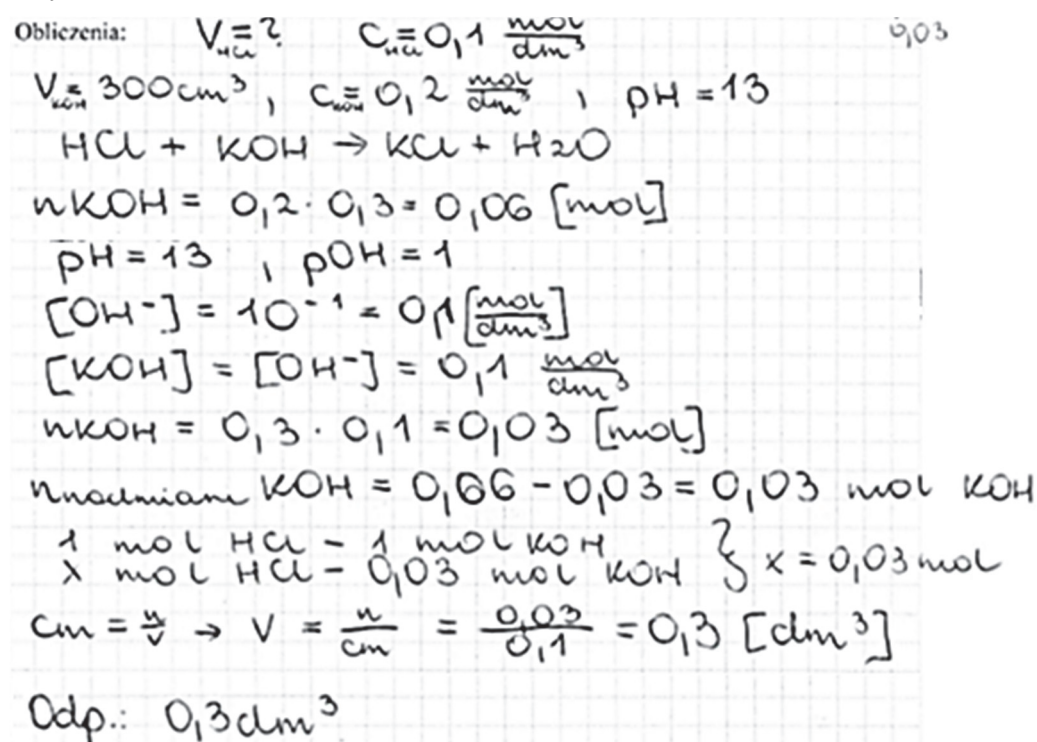 Obliczenia: V HCl = ? C HCl = 0,1 mol/dm³ 0,03
V KOH = 300cm³, C KOH = 0,2 mol/dm³, pH = 13
HCl + KOH → KCl + H2O
nKOH = 0,2 · 0,3 = 0,06 [mol]
pH = 13, pOH = 1
[OH⁻] = 10⁻¹ = 0,1 [mol/dm³]
[KOH] = [OH⁻] = 0,1 mol/dm³
nKOH = 0,3 · 0,1 = 0,03 [mol]
nnadmiaru KOH = 0,06 - 0,03 = 0,03 mol KOH
1 mol HCl - 1 mol KOH
x mol HCl - 0,03 mol KOH } x = 0,03 mol
Cm = n/V → V = n/cm = 0,03/0,1 = 0,3 [dm³]
Odp.: 0,3dm³